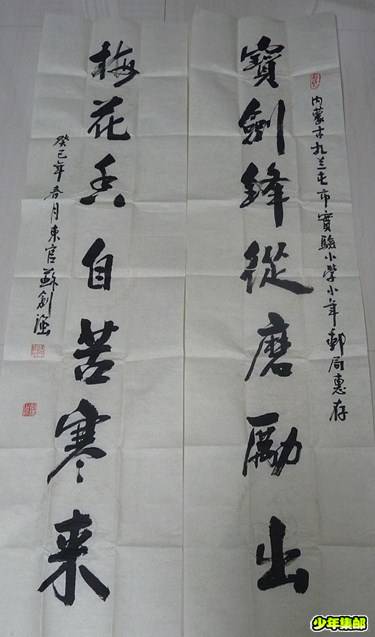 內蒙古扎兰屯市實驗小學小年郵局惠存
寶劍鋒從磨勵出
梅花香自苦寒来
癸巳年春月東官蘇劍強
少年集邮